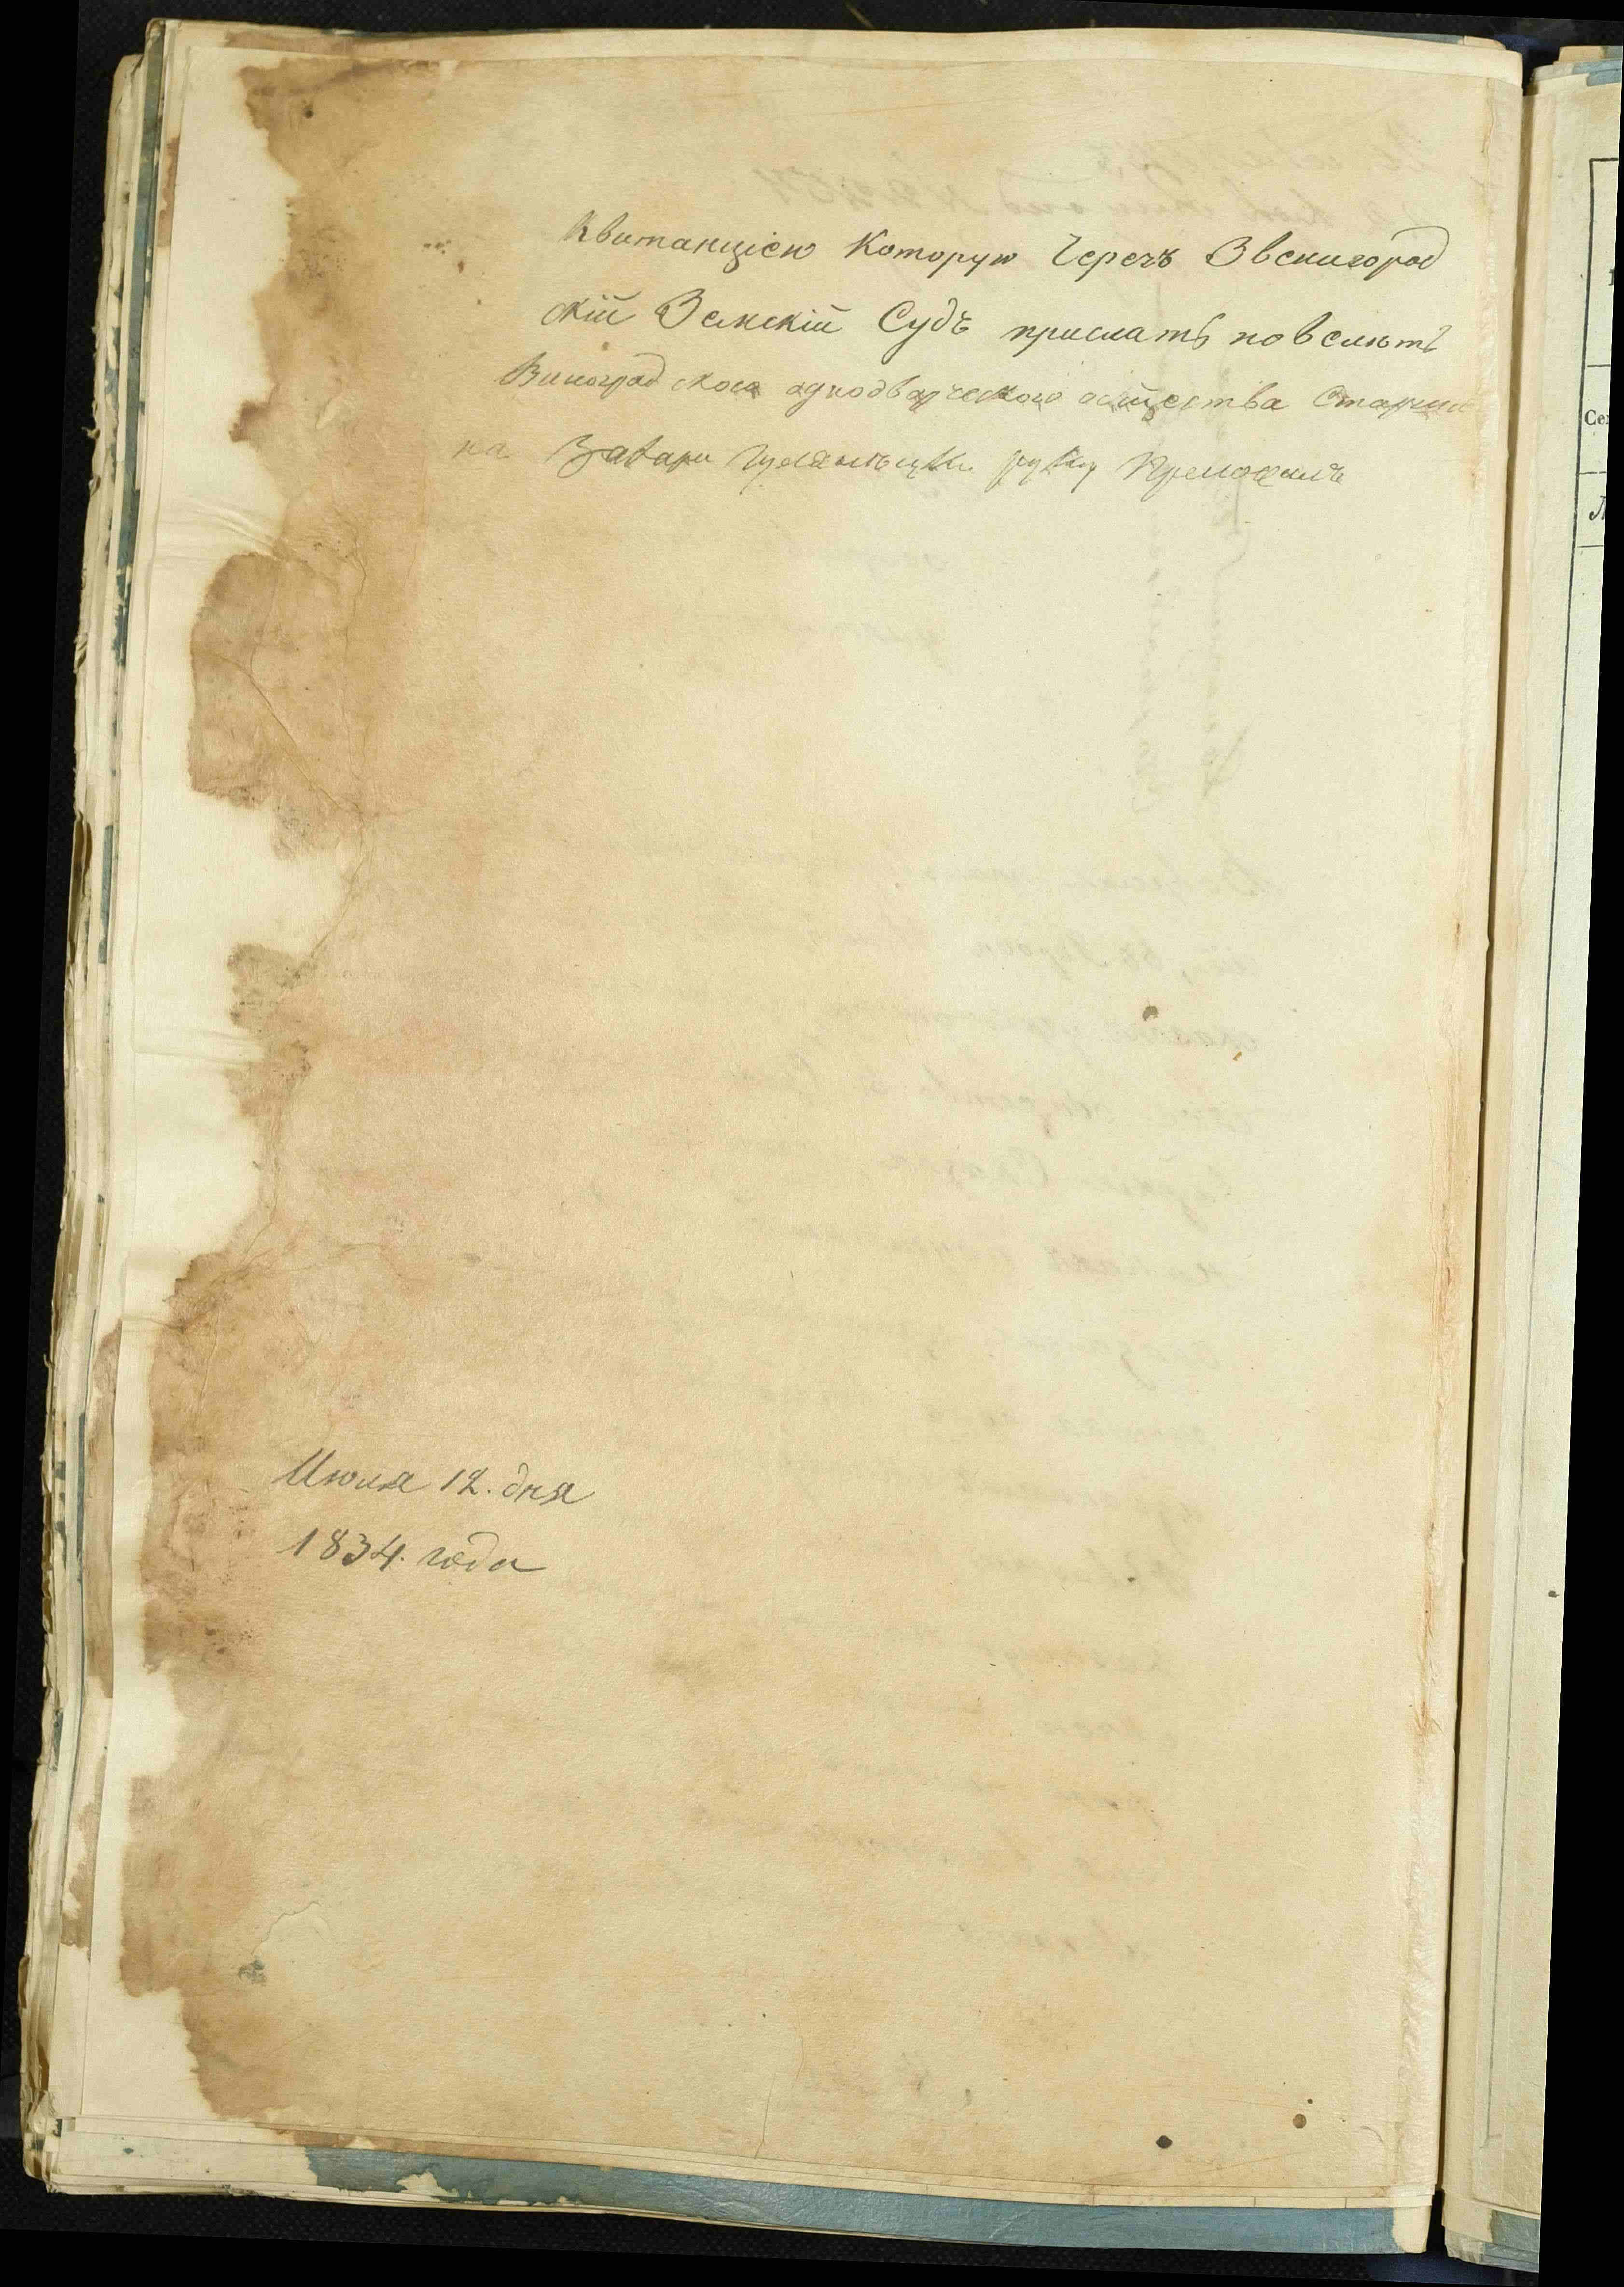 Квитанцiею Которую Черезъ Звенигород
скiй Земскiй Судъ прислать повелѣть
Виноградскога аднодварческого общества Старши
на Захари руку Преложилъ
Июля 12. дня
1834. года